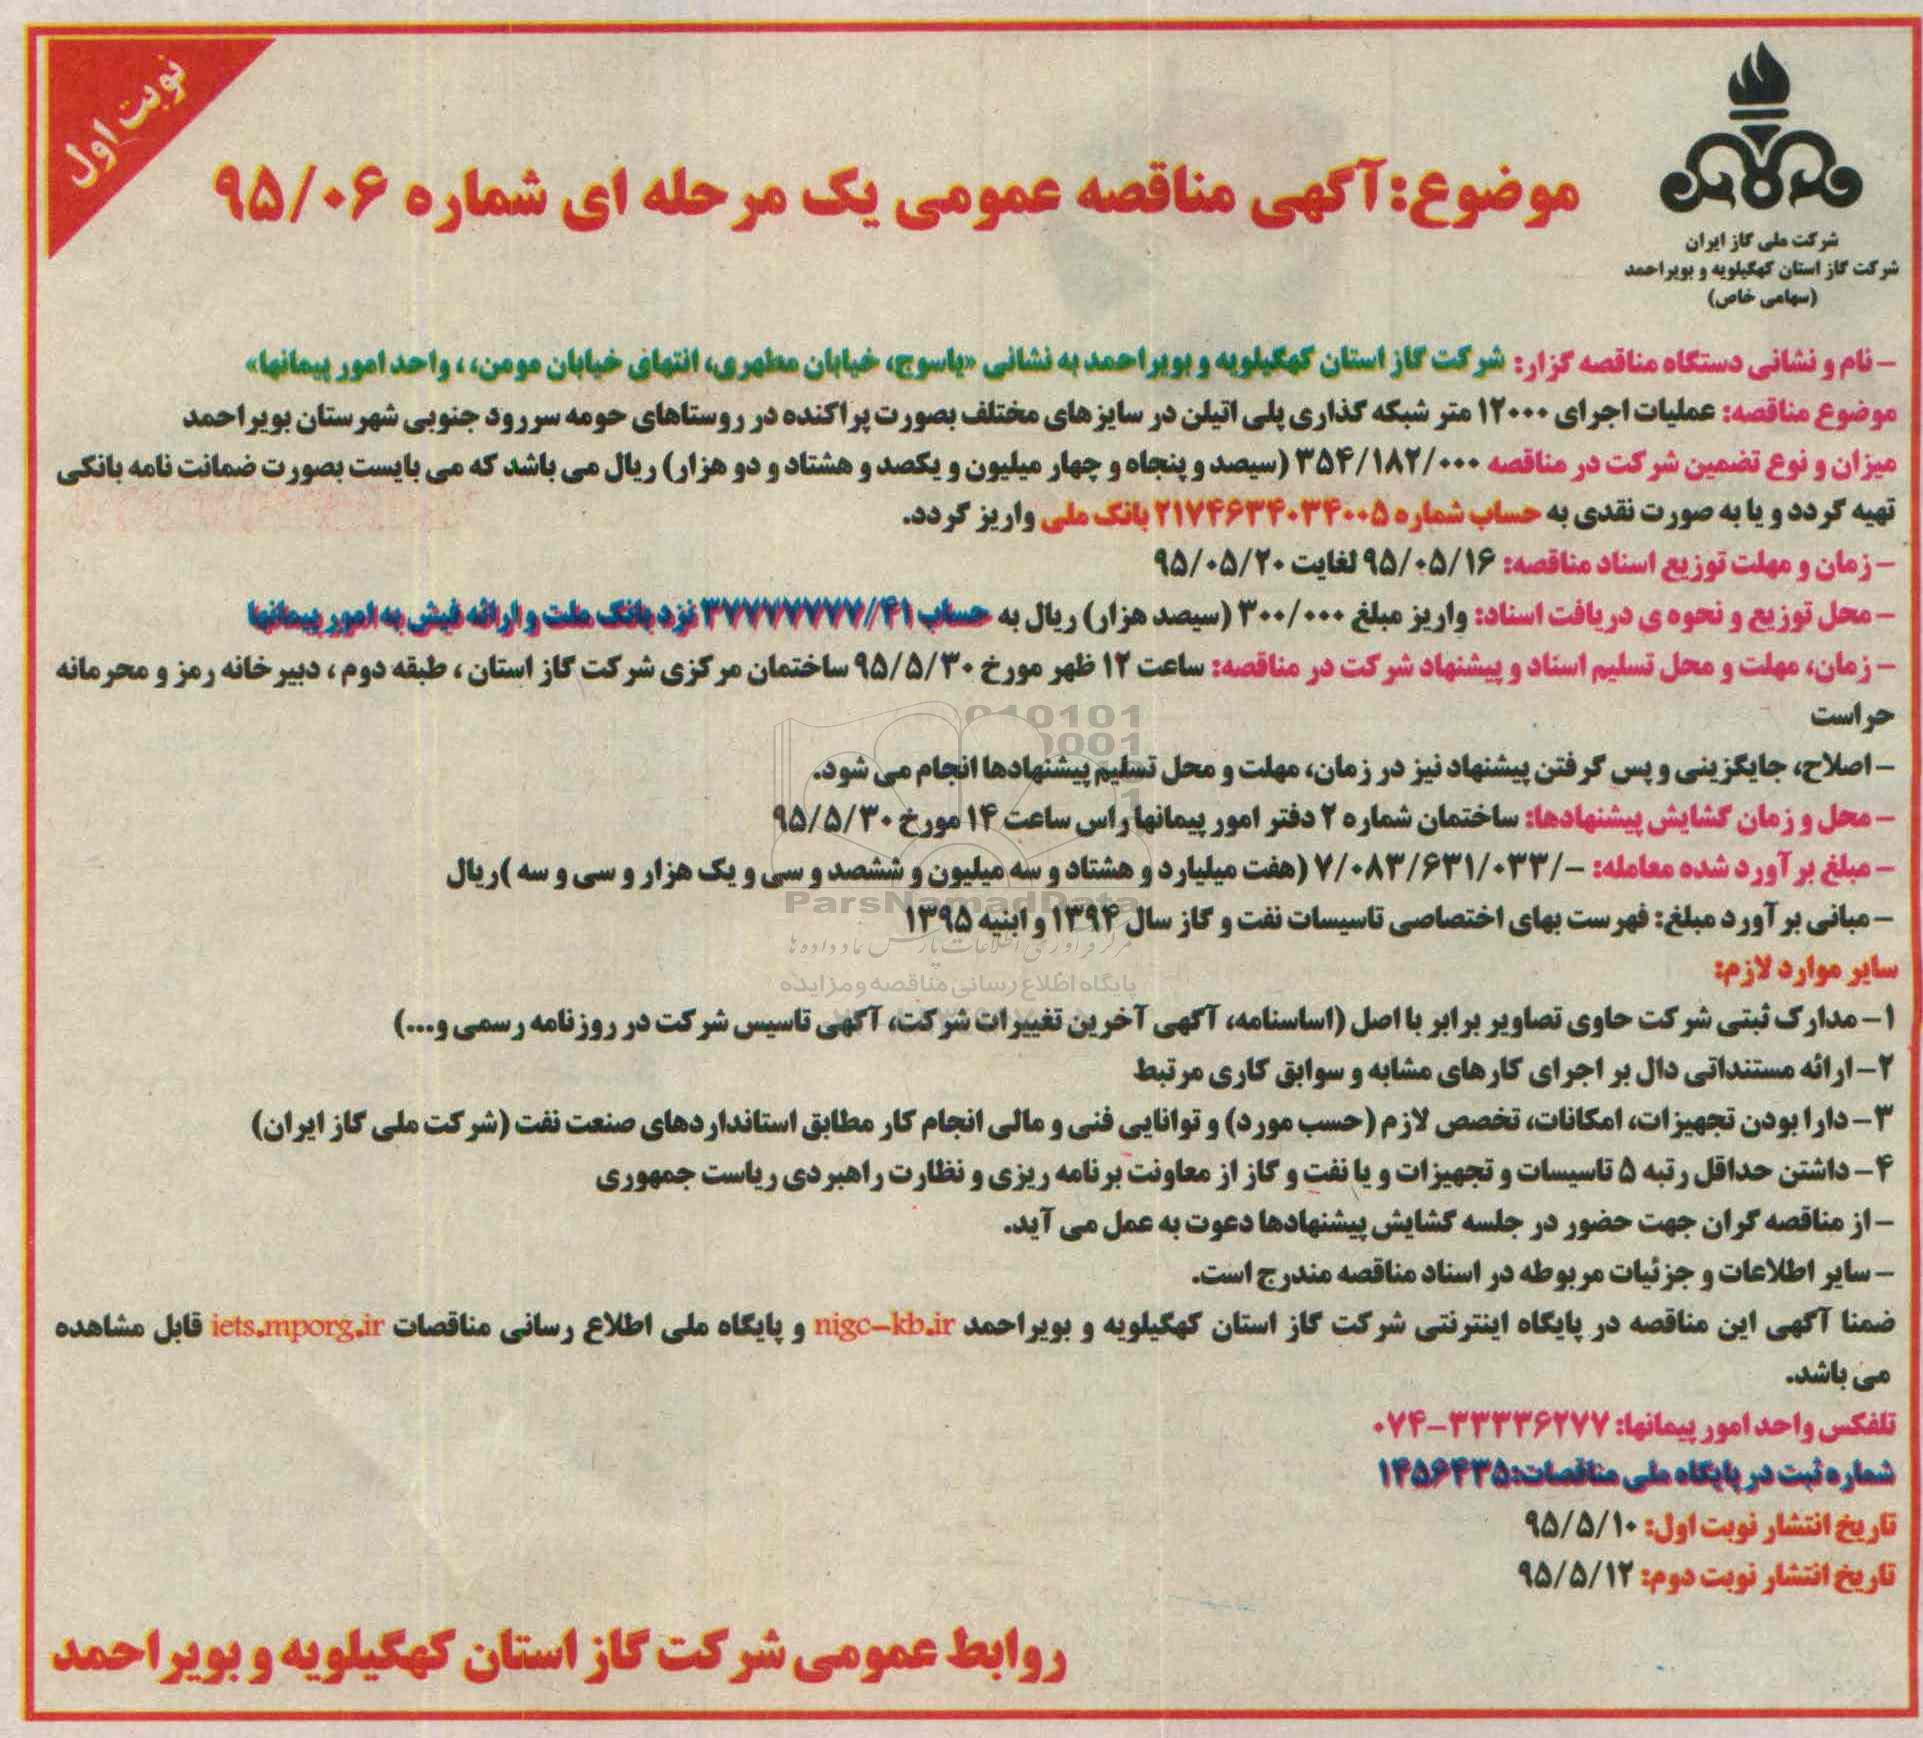 نوبت اول
شرکت ملی گاز ایران
شرکت گاز استان کهگیلویه و بویراحمد
(سهامی خاص)
موضوع:آگهی مناقصه عمومی یک مرحله ای شماره ۹۵/۰۶
- نام و نشانی دستگاه مناقصه گزار: شرکت گاز استان کهگیلویه و بویراحمد به نشانی «یاسوج، خیابان مطهری، انتهای خیابان مومن، ، واحد امور پیمانها»
موضوع مناقصه: عملیات اجرای ۱۲۰۰۰ متر شبکه گذاری پلی اتیلن در سایزهای مختلف بصورت پراکنده در روستاهای حومه سررود جنوبی شهرستان بویراحمد
میزان و نوع تضمین شرکت در مناقصه ۳۵۴/۱۸۲/۰۰۰ (سیصد و پنجاه و چهار میلیون و یکصد و هشتاد و دو هزار) ریال می باشد که می بایست بصورت ضمانت نامه بانکی
تهیه گردد و یا به صورت نقدی به حساب شماره ۲۱۷۴۶۳۴۰۳۴۰۰۵ بانک ملی واریز گردد.
- زمان و مهلت توزیع اسناد مناقصه: ۹۵/۰۵/۱۶ لغایت ۹۵/۰۵/۲۰
- محل توزیع و نحوه ی دریافت اسناد: واریز مبلغ ۳۰۰/۰۰۰ (سیصد هزار) ریال به حساب ۳۷۷۷۷۷۷۷/۴۱ نزد بانک ملت و ارائه فیش به امور پیمانها
- زمان، مهلت و محل تسلیم اسناد و پیشنهاد شرکت در مناقصه: ساعت ۱۲ ظهر مورخ ۹۵/۵/۳۰ ساختمان مرکزی شرکت گاز استان ، طبقه دوم ، دبیرخانه رمز و محرمانه
حراست
- اصلاح، جایگزینی و پس گرفتن پیشنهاد نیز در زمان، مهلت و محل تسلیم پیشنهادها انجام می شود.
- محل و زمان گشایش پیشنهادها: ساختمان شماره ۲ دفتر امور پیمانها راس ساعت ۱۴ مورخ ۹۵/۵/۳۰
- مبلغ برآورد شده معامله: -/۷/۰۸۳/۶۳۱/۰۳۳ (هفت میلیارد و هشتاد و سه میلیون و ششصد و سی و یک هزار و سی و سه )ریال
- مبانی برآورد مبلغ: فهرست بهای اختصاصی تاسیسات نفت و گاز سال ۱۳۹۴ و ابنیه ۱۳۹۵
ParsNamadData
مرکز فرآوری اطلاعات پارس نماد داده ها
پایگاه اطلاع رسانی مناقصه و مزایده
سایر موارد لازم:
۱- مدارک ثبتی شرکت حاوی تصاویر برابر با اصل (اساسنامه، آگهی آخرین تغییرات شرکت، آگهی تاسیس شرکت در روزنامه رسمی و...)
۲- ارائه مستنداتی دال بر اجرای کارهای مشابه و سوابق کاری مرتبط
۳- دارا بودن تجهیزات، امکانات، تخصص لازم (حسب مورد) و توانایی فنی و مالی انجام کار مطابق استانداردهای صنعت نفت (شرکت ملی گاز ایران)
۴- داشتن حداقل رتبه ۵ تاسیسات و تجهیزات و یا نفت و گاز از معاونت برنامه ریزی و نظارت راهبردی ریاست جمهوری
- از مناقصه گران جهت حضور در جلسه گشایش پیشنهادها دعوت به عمل می آید.
- سایر اطلاعات و جزئیات مربوطه در اسناد مناقصه مندرج است.
ضمنا آگهی این مناقصه در پایگاه اینترنتی شرکت گاز استان کهگیلویه و بویراحمد nigc-kb.ir و پایگاه ملی اطلاع رسانی مناقصات iets.mporg.ir قابل مشاهده
می باشد.
تلفکس واحد امور پیمانها: ۳۳۳۳۶۲۷۷-۰۷۴
شماره ثبت در پایگاه ملی مناقصات:۱۴۵۶۴۳۵
تاریخ انتشار نوبت اول: ۹۵/۵/۱۰
تاریخ انتشار نوبت دوم: ۹۵/۵/۱۲
روابط عمومی شرکت گاز استان کهگیلویه و بویراحمد